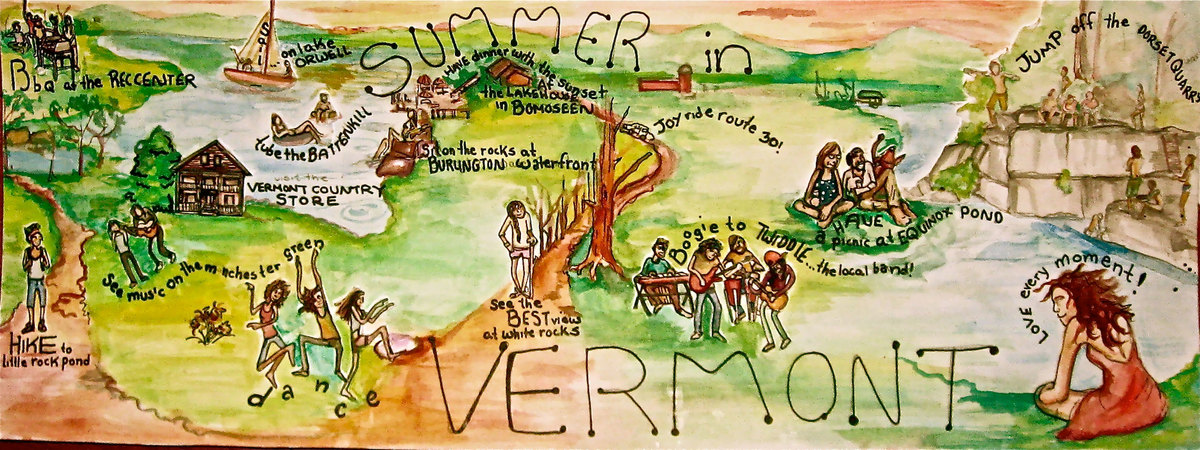 SUMMER in
Bbq at the REC CENTER
SAIL
...on lake
ORWELL
Have dinner with the sunset
the LAKEHOUSE
in BOMOSEEN
JUMP off the DORSET QUARRY
tube the BATTENKILL
Sit on the rocks at
BURLINGTON waterfront
Joy ride route 30!
visit the
VERMONT COUNTRY
STORE
HAVE
a picnic at EQUINOX POND
see music on the manchester green
Boogie to TWIDDLE...the local band!
LOVE every moment!
HIKE to
little rock pond
dance
see the
BEST view
at white rocks
VERMONT